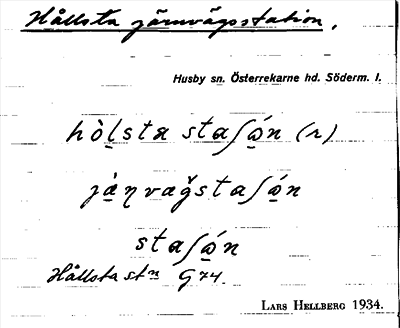 Hållsta järnvägsstation,
Husby sn. Österrekarne hd. Söderm. l.
hò̤lsta staʃώ̤n (r)
jà̤ꞃvag̊staʃώ̤n
staʃώ̤n
Hållsta stn G74.
LARS HELLBERG 1934.